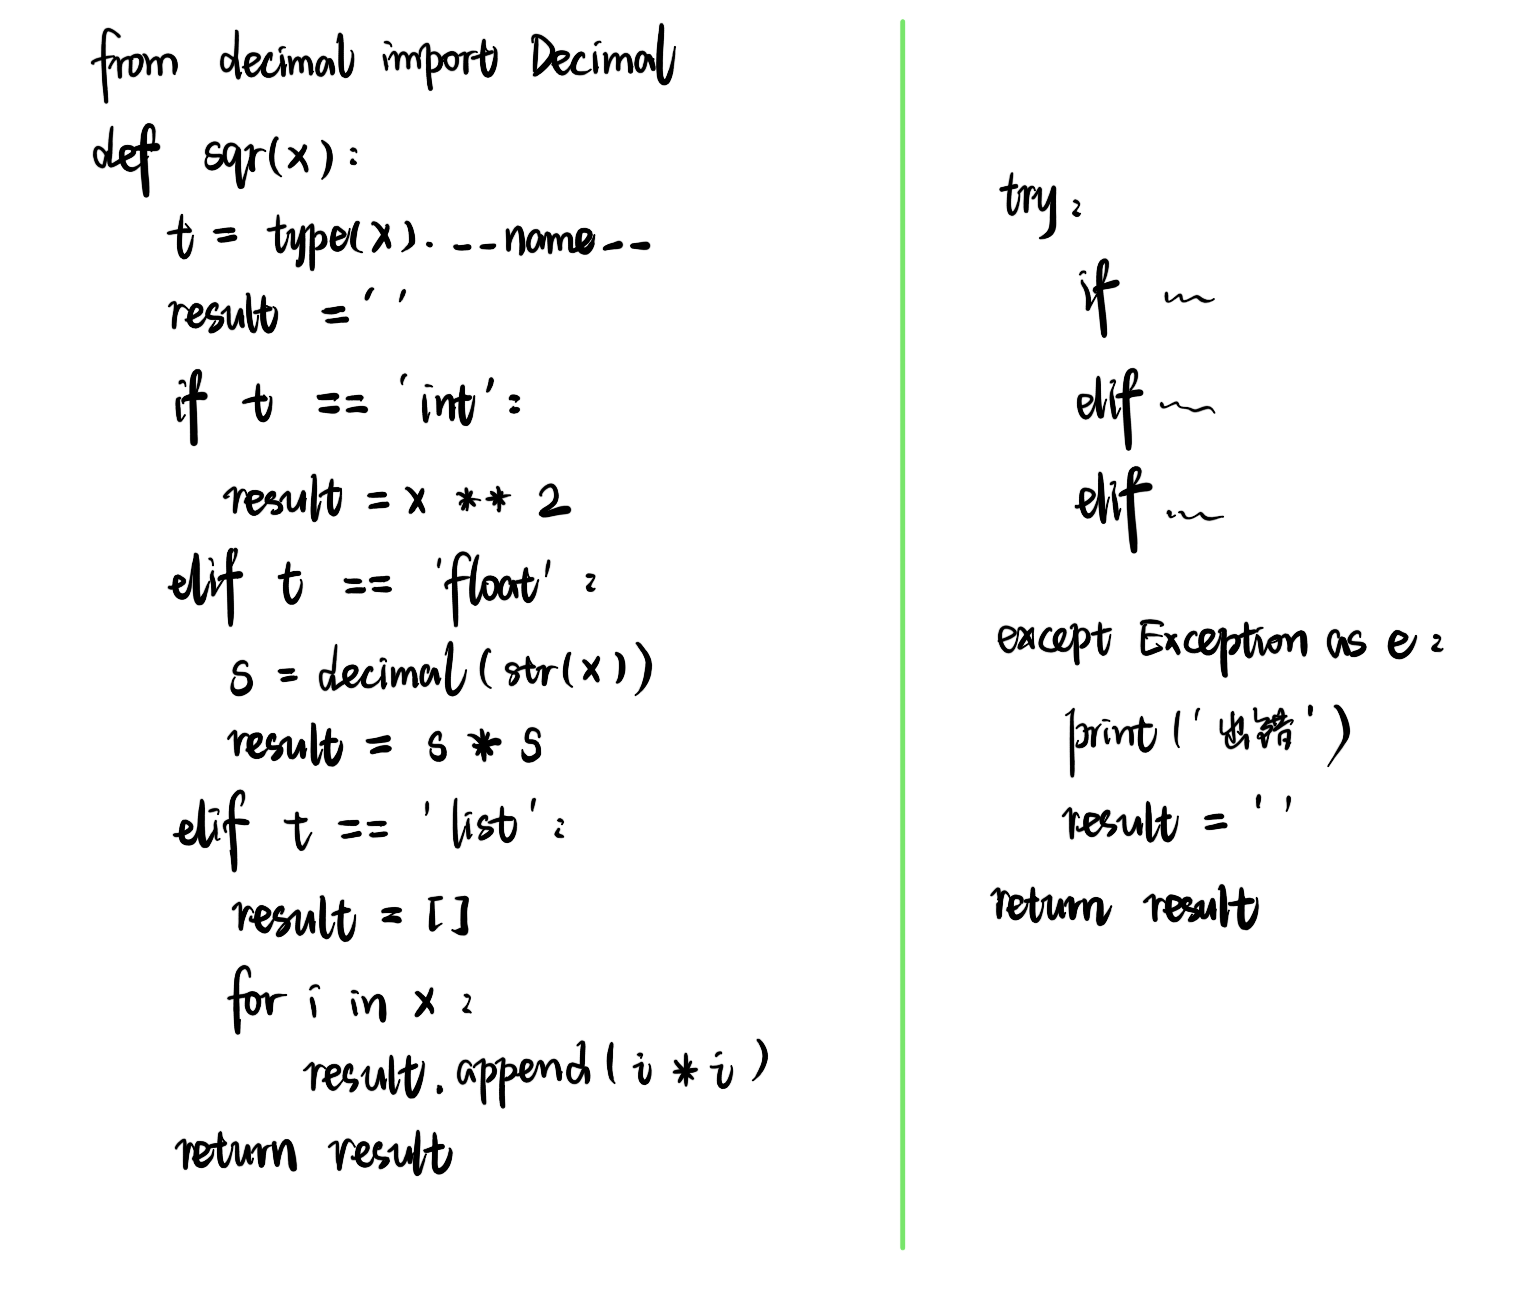 from decimal import Decimal
def sqr(x):
t = type(x).__name__
result = ''
if t == 'int':
result = x ** 2
elif t == 'float':
s = decimal(str(x))
result = s * s
elif t == 'list':
result = []
for i in x:
result.append(i * i)
return result
try:
if ~~
elif ~~
elif ~~
except Exception as e:
print('出错')
result = ''
return result